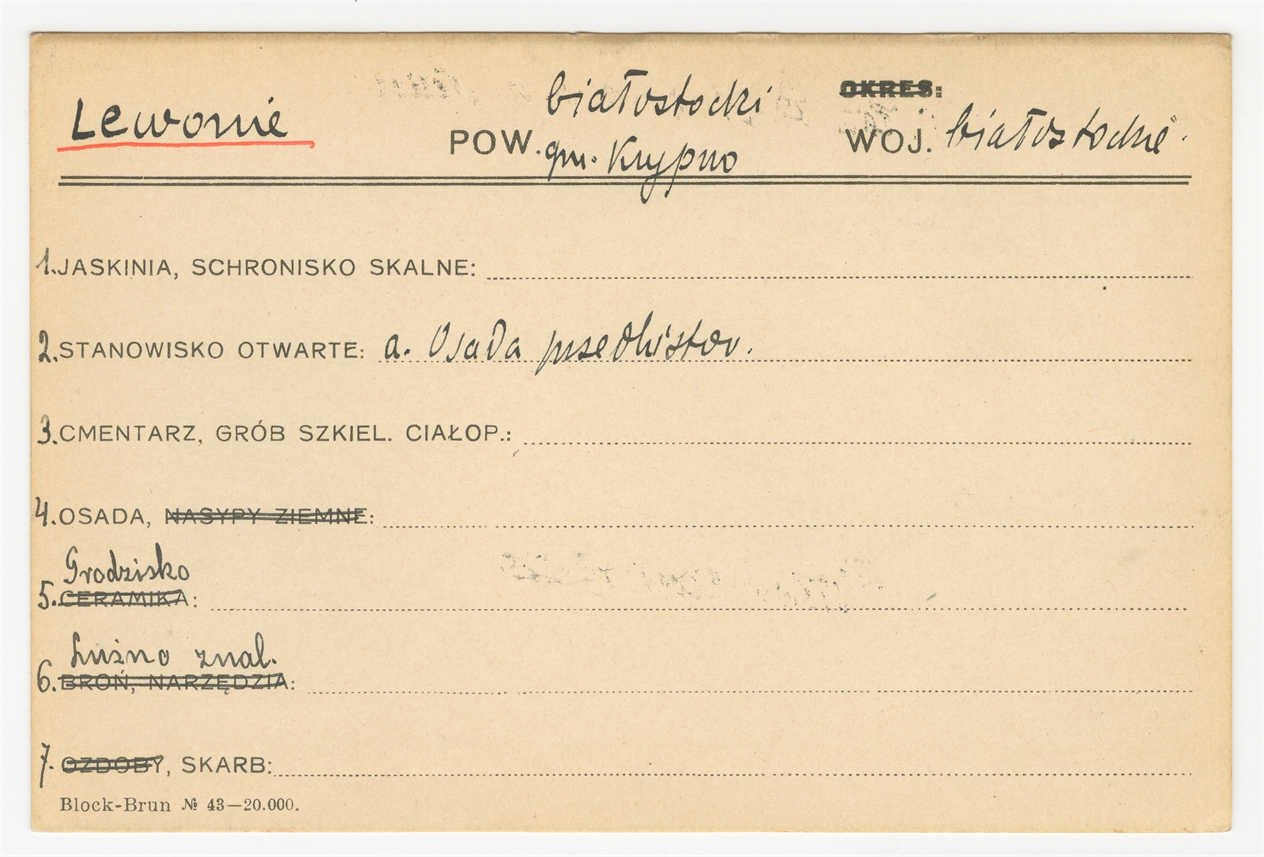 Lewonie
POW. białostocki
gm. Krypno
OKRES:
WOJ. białostockie.
1. JASKINIA, SCHRONISKO SKALNE:
2. STANOWISKO OTWARTE: a. Osada przedhistor.
3. CMENTARZ, GRÓB SZKIEL. CIAŁOP.:
4. OSADA, NASYPY ZIEMNE:
Grodzisko
5. CERAMIKA:
Luźno znal.
6. BROŃ, NARZĘDZIA:
7. OZDOBY, SKARB:
Block-Brun № 43—20.000.